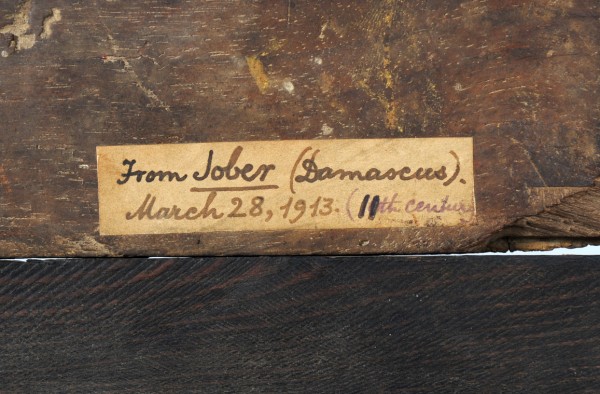 From Jober (Damascus).
March 28, 1913. (11th centur